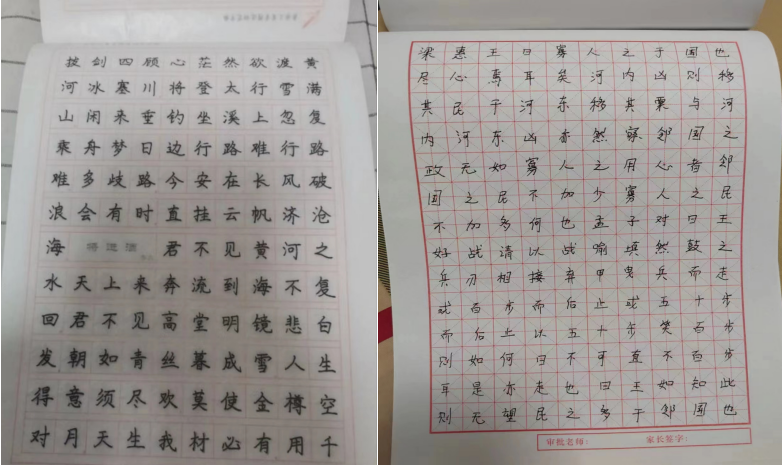 拔剑四顾心茫然欲渡黄
河冰塞川将登太行雪满
山闲来垂钓坐溪上忽复
乘舟梦日边行路难行路
难多歧路今安在长风破
浪会有时直挂云帆济沧
海 将进酒 君不见黄河之
水天上来奔流到海不复
回君不见高堂明镜悲白
发朝如青丝暮成雪人生
得意须尽欢莫使金樽空
对月天生我材必有用千
梁惠王曰寡人之于国也
尽心焉耳矣河内凶则移
其民于河东移其粟与河
内河东凶亦然察邻国之
政无如寡人之用心者邻
国之民不加少寡人之民
不加多何也孟子对曰王
好战请以战喻填然鼓之
兵刃相接弃甲曳兵而走
或百步而后止或五十步
而后止以五十步笑百步
则如何曰不可直不百步
耳是亦走也曰王如知此
则无望民之多于邻国也
审批老师： 家长签字：